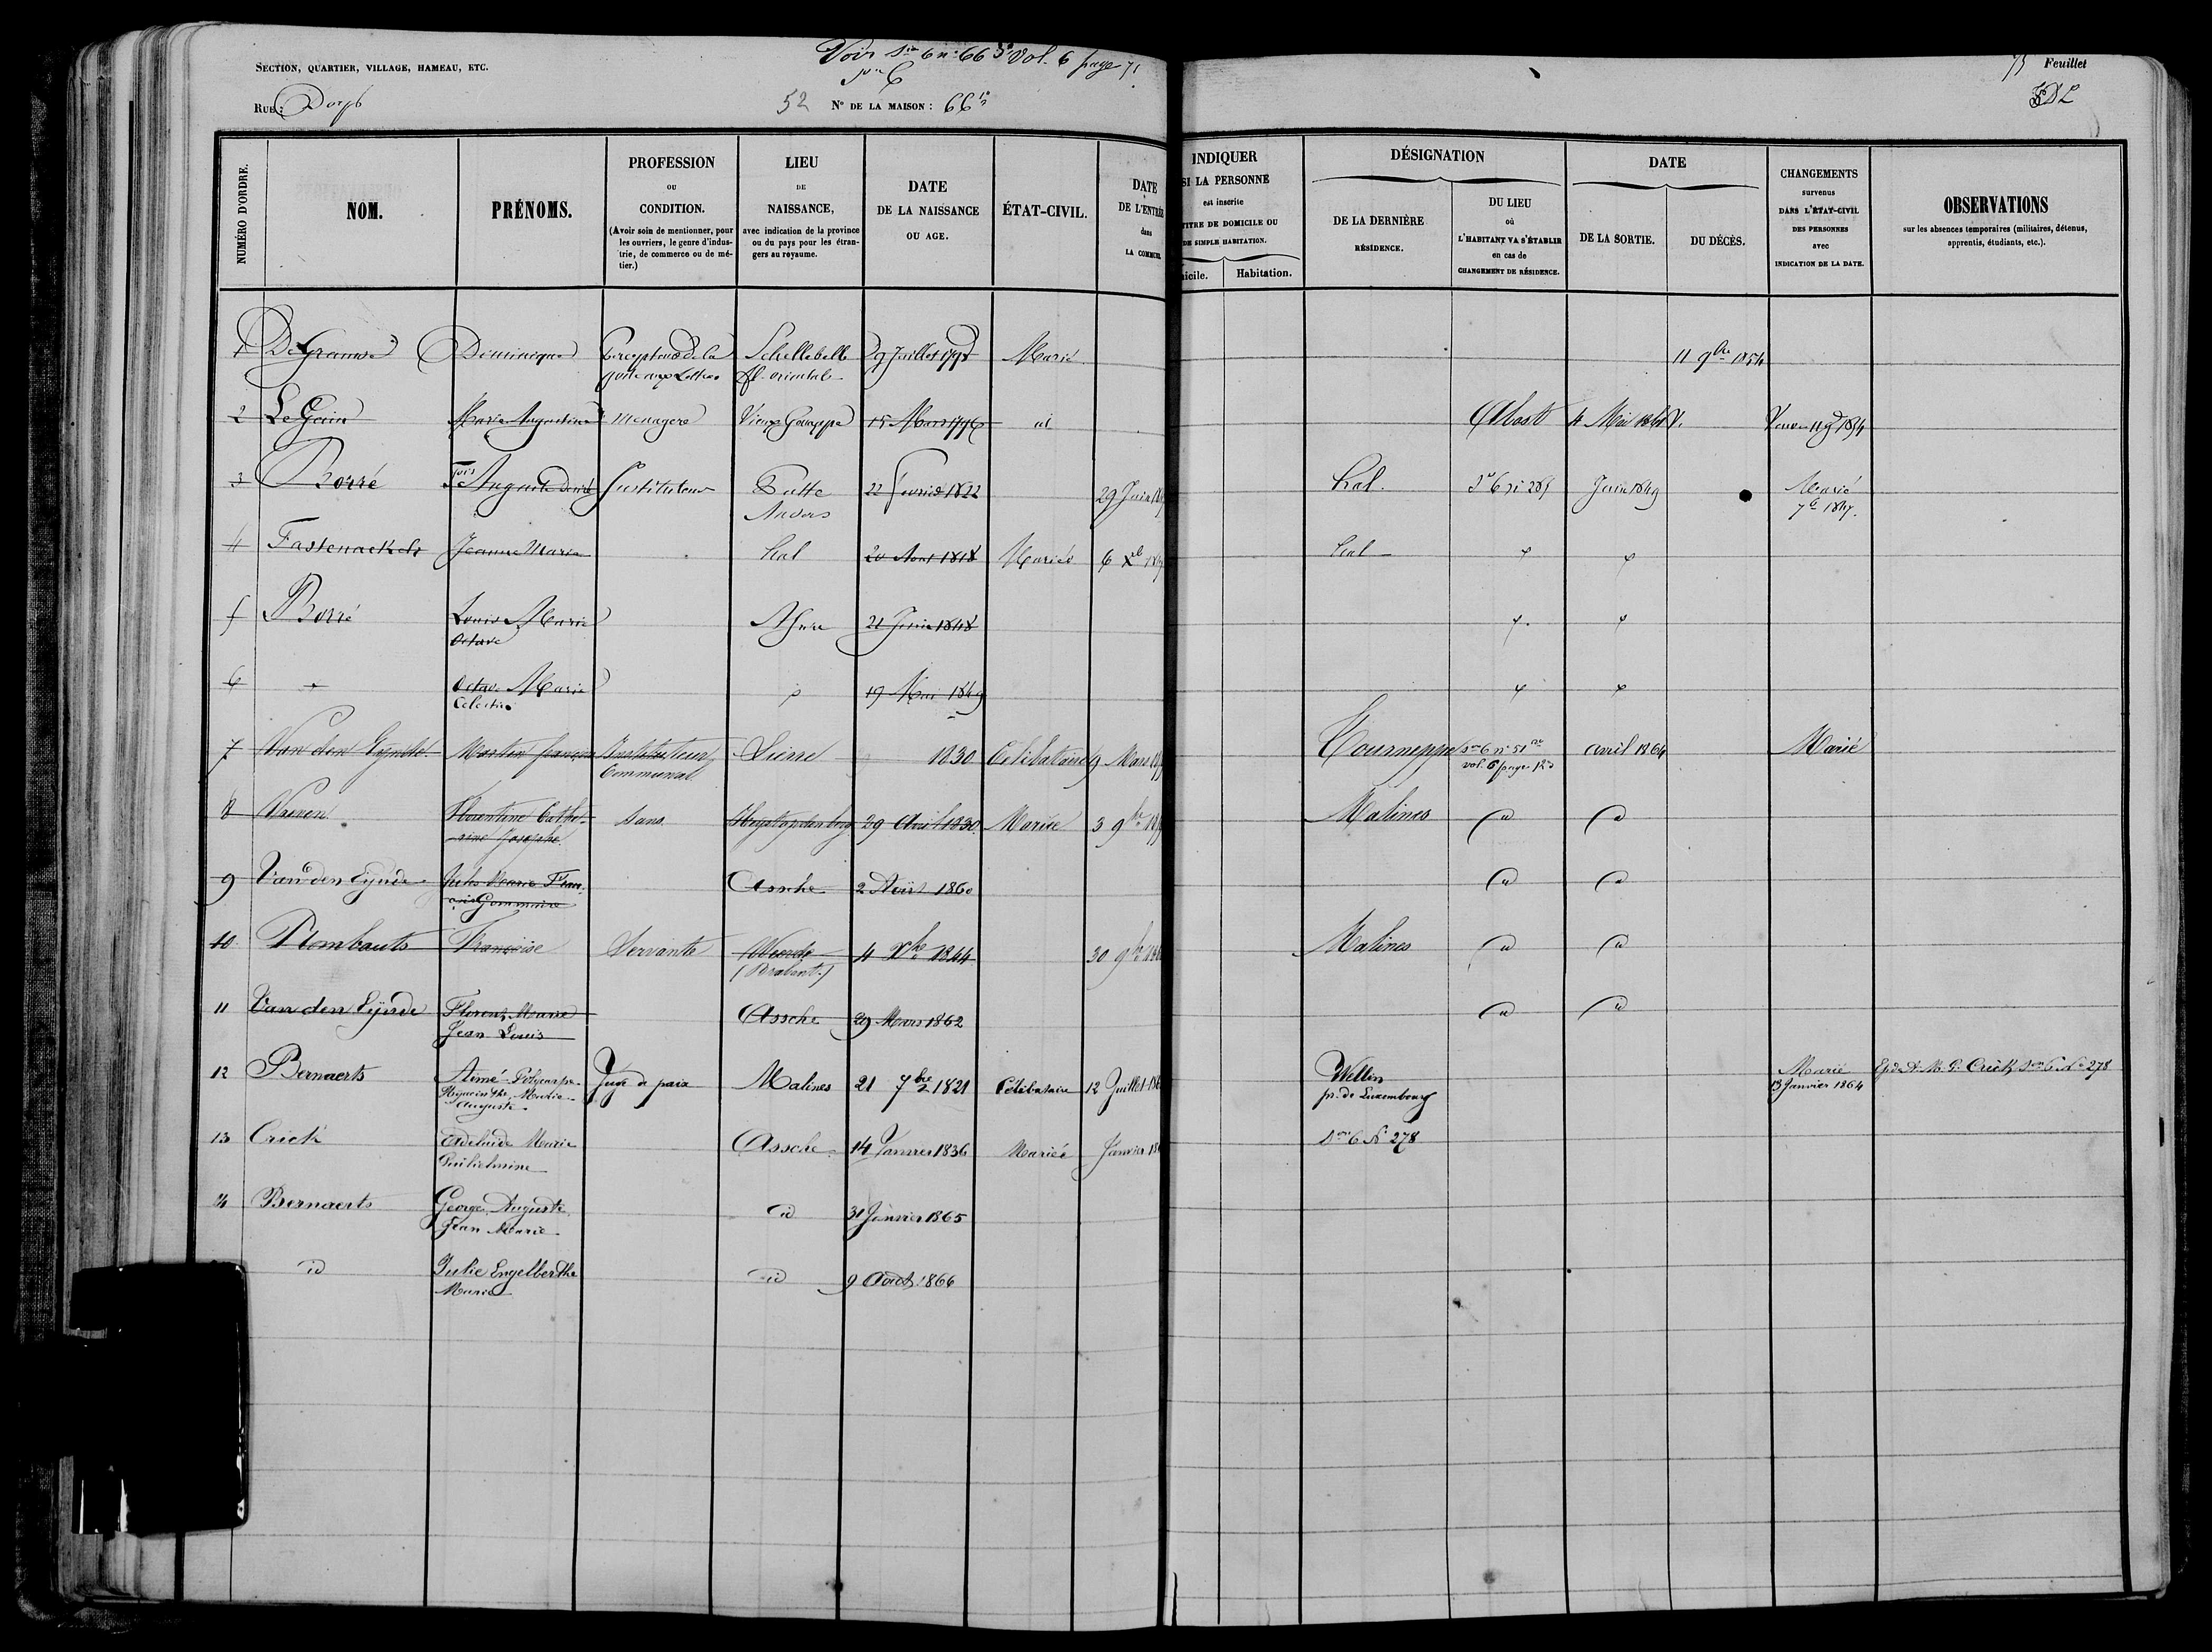 SECTION, QUARTIER, VILLAGE, HAMEAU, ETC.
Voir Son 6 n: 66 Vol. 6 page 71
RUE: Dorp
52 No DE LA MAISON: 66
75 Feuillet
NUMÉRO D'ORDRE.
NOM.
PRÉNOMS.
PROFESSION
OU
CONDITION.
(Avoir soin de mentionner, pour
les ouvriers, le genre d'indus-
trie, de commerce ou de mé-
tier.)
LIEU
DE
NAISSANCE,
avec indication de la province
ou du pays pour les étran-
gers au royaume.
DATE
DE LA NAISSANCE
OU AGE.
ÉTAT-CIVIL.
DATE
DE L'ENTRÉE
dans
LA COMMUNE
INDIQUER
SI LA PERSONNE
est inscrite
TITRE DE DOMICILE OU
DE SIMPLE HABITATION.
icile.
Habitation.
DÉSIGNATION
DE LA DERNIÈRE
RÉSIDENCE.
DU LIEU
où
L'HABITANT VA S'ÉTABLIR
en cas de
CHANGEMENT DE RÉSIDENCE.
DATE
DE LA SORTIE.
DU DÉCÈS.
CHANGEMENTS
survenus
DANS L'ÉTAT-CIVIL
DES PERSONNES
avec
INDICATION DE LA DATE.
OBSERVATIONS
sur les absences temporaires (militaires, détenus,
apprentis, étudiants, etc.).
1 Dominique Percepteur de la Schellebelle 29 Juillet Marié 11 9bre 1854
poste aux Lettres fl-orientale
2 Marie Augustine menagere Vieux Genappe 15 Mars id Alost 4 Mai
3 Borré Auguste Instituteur Putte 22 1822 29 Juin Hal Juin 1849 Marié
Anvers 7b 1847.
4 Jeanne Marie Hal 20 Aout 1818 Mariée 6 Xb Hal
5 Borré Louis Marie 21 Juin 1848
Octave
6 Octave Marie 19 Mai 1849
7 Van den Eynde Martin françois Instituteur Lierre 1830 Célibataire 9 Mars Tourneppe Son 6 no 51 avril 1864 Marié
Communal vol. 6 page
8 Vreven Florentine Cathe- sans Heyst op den berg 29 Avril 1830 Mariée 3 9bre Malines id id
rine Josephe
9 Van den Eynde Jules Marie Fran- Assche 2 Août 1860 id id
çois Gommaire
10 Rombauts Françoise Servante Weerde 4 Xbre 1844 30 9bre Malines id id
(Brabant)
11 Van den Eynde Florent Marie Assche 29 Mars 1862 id id
Jean Louis
12 Bernaerts Aimé-Polycarpe- Juge de paix Malines 21 7bre 1821 Célibataire 12 Juillet Wellin Marié Crick, Son 6 No 278
Hyacinthe Marie- pr. de Luxembourg 13 Janvier 1864
Auguste
13 Crick Adelaide Marie Assche 14 Janvier 1836 Mariée Janvier Son 6 No 278
Guilielmine
14 Bernaerts George Auguste id 31 Janvier 1865
Jean Marie
id Julie Engelberthe id 9 Août 1866
Marie